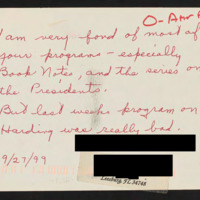 O-Am
I am very fond of most of
your programs - especially
Book Notes, and the series on
the Presidents.
But last weeks program on
Harding was really bad.
9/27/99
Leesburg, FL 34748